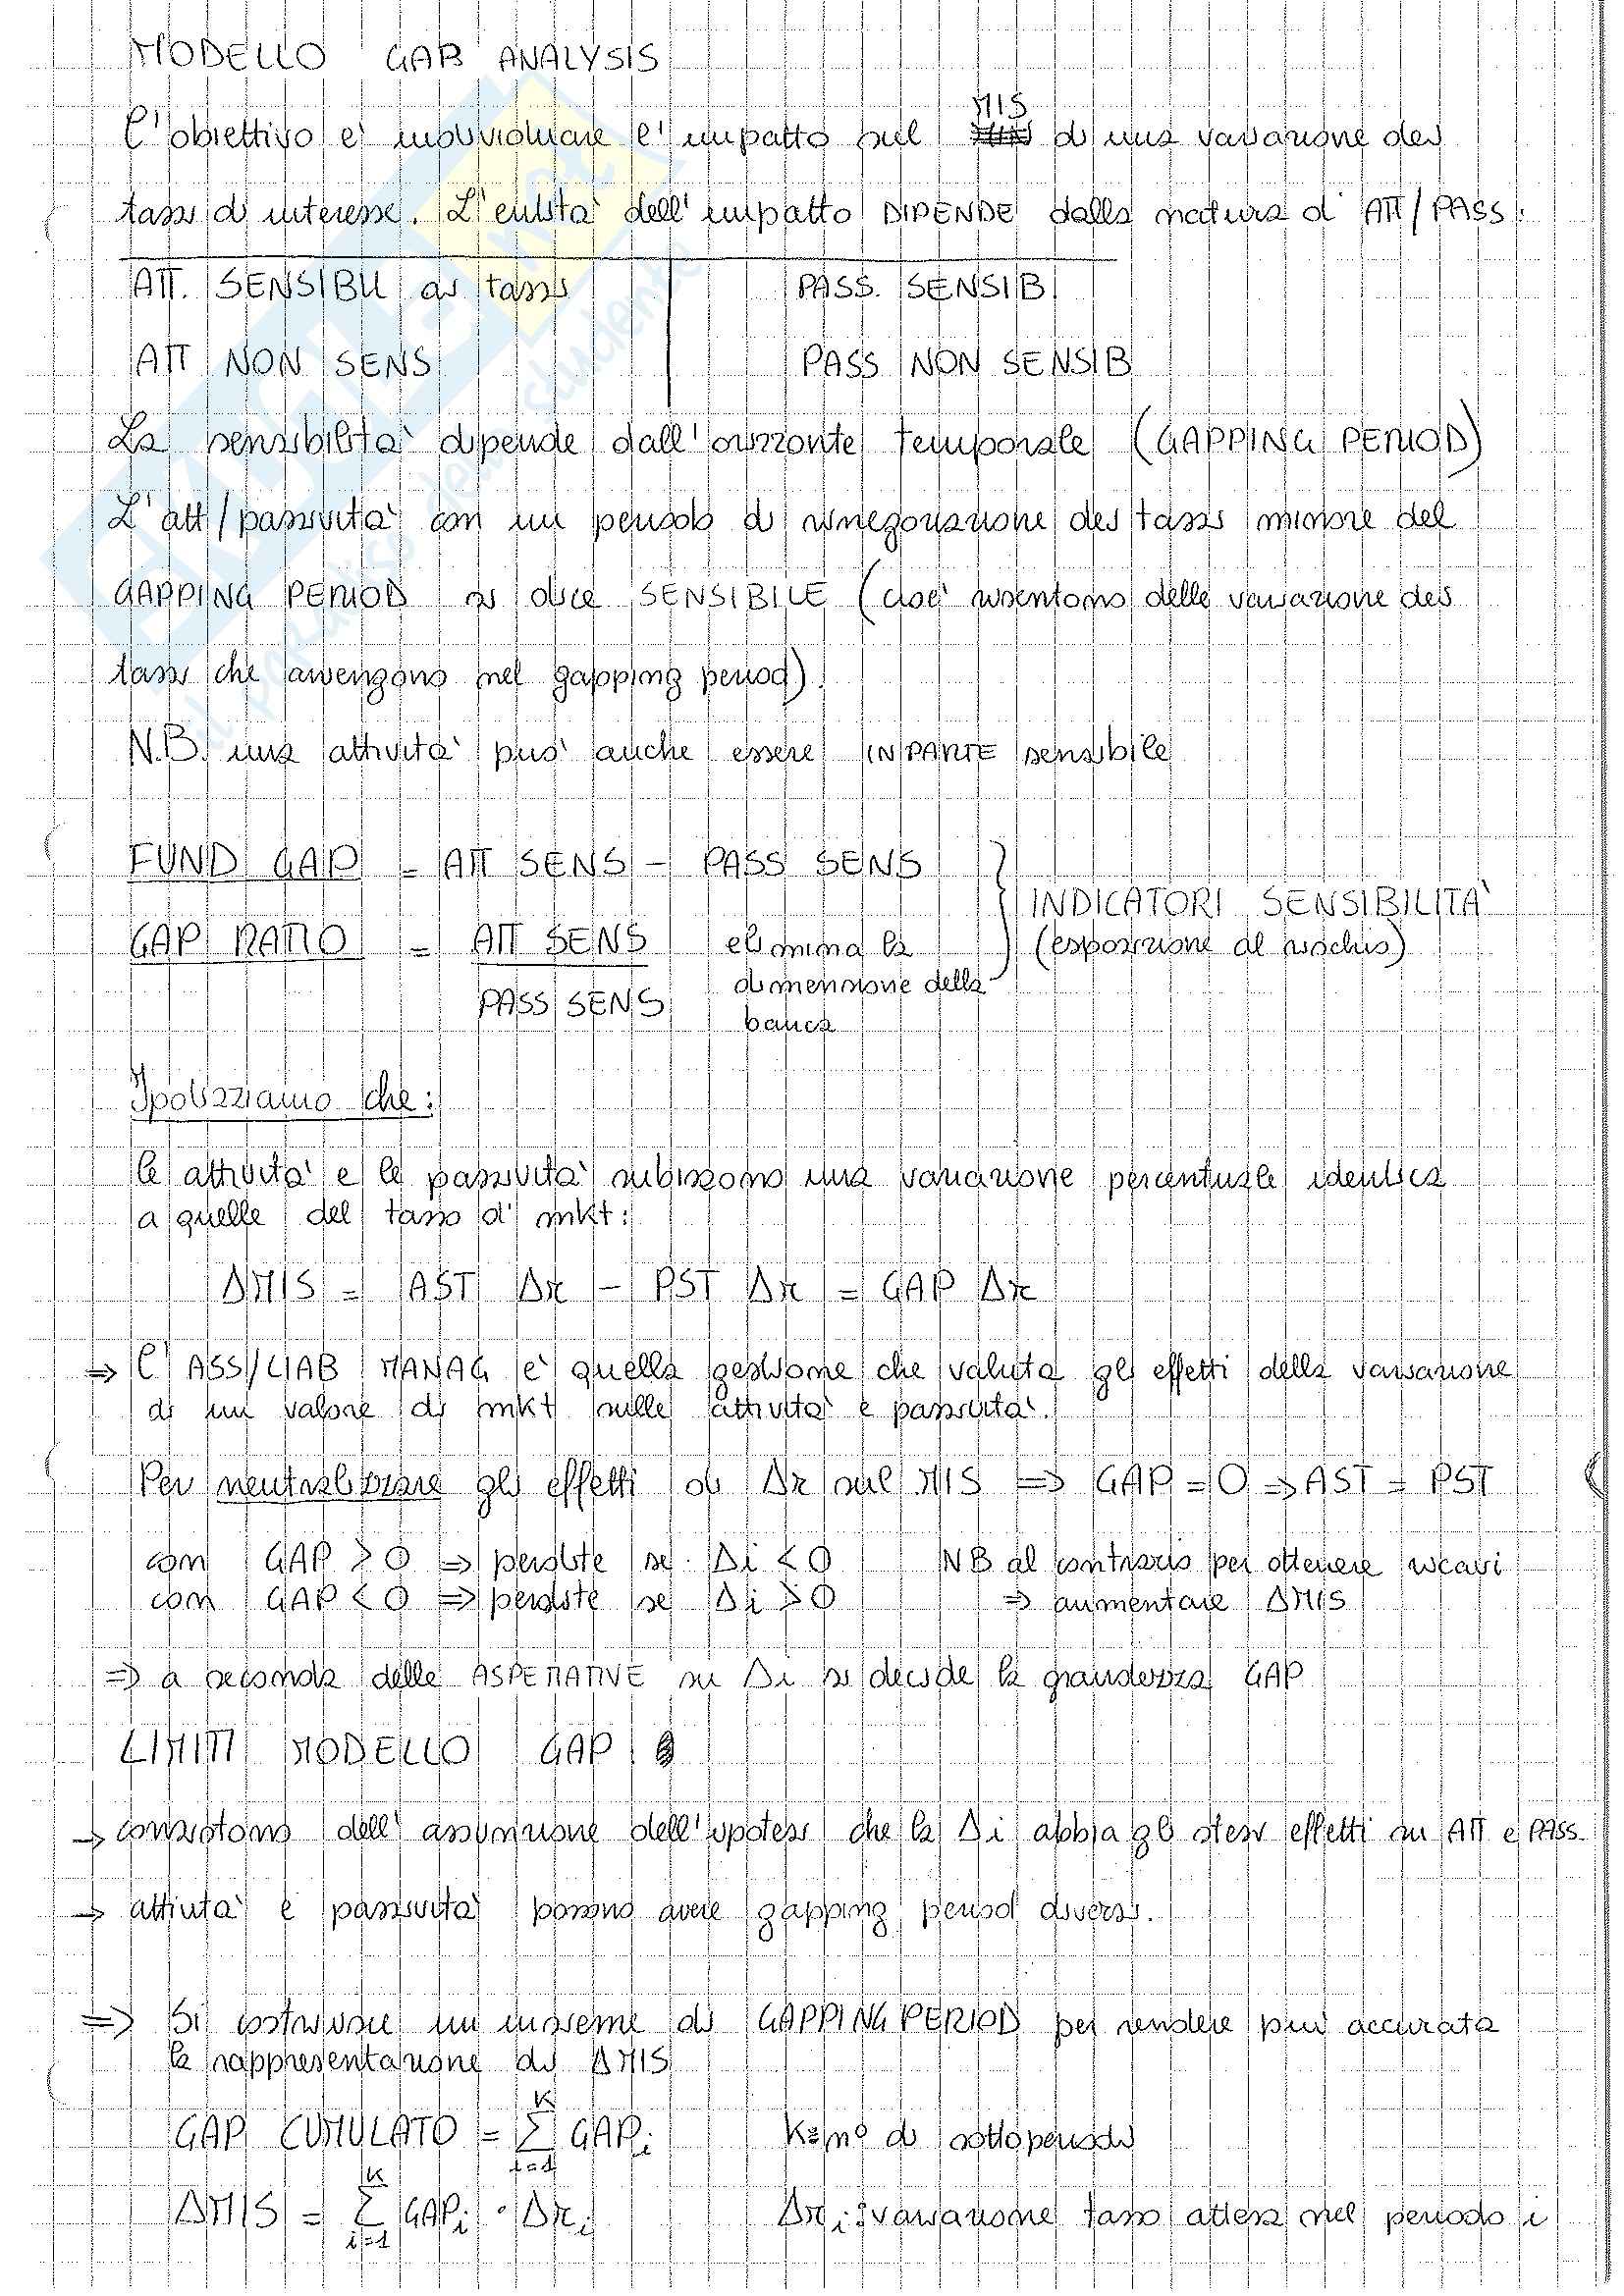 MODELLO GAP ANALYSIS
MIS
L'obiettivo è individuare l'impatto sul di una variazione dei
tassi di interesse. L'entità dell'impatto DIPENDE dalla natura d' ATT/PASS:
ATT. SENSIBILI ai tassi PASS. SENSIB.
ATT NON SENS PASS NON SENSIB
La sensibilità dipende dall'orizzonte temporale (GAPPING PERIOD)
L'att/passività con un periodo di rinegoziazione dei tassi minore del
GAPPING PERIOD si dice SENSIBILE (cioè risentono delle variazione dei
tassi che avvengono nel gapping period).
N.B. una attività può anche essere IN PARTE sensibile
FUND GAP = ATT SENS - PASS SENS
INDICATORI SENSIBILITÀ
GAP RATIO = ATT SENS elimina la (esposizione al rischio)
PASS SENS dimensione della
banca
Ipotizziamo che:
le attività e le passività subiscono una variazione percentuale identica
a quelle del tasso d' mkt:
ΔMIS = AST Δr - PST Δr = GAP Δr
⇒ L' ASS/LIAB MANAG è quella gestione che valuta gli effetti della variazione
di un valore di mkt sulle attività e passività.
Per neutralizzare gli effetti di Δr sul MIS ⇒ GAP = 0 ⇒ AST = PST
con GAP > 0 ⇒ perdite se Δi < 0 NB al contrario per ottenere ricavi
con GAP < 0 ⇒ perdite se Δi > 0 ⇒ aumentare ΔMIS
⇒ a seconda delle ASPETTATIVE su Δi si decide la grandezza GAP
LIMITI MODELLO GAP
→ consistono dell'assunzione dell'ipotesi che la Δi abbia gli stessi effetti su ATT e PASS
→ attività e passività possono avere gapping period diversi.
⇒ Si costruisce un insieme di GAPPING PERIOD per rendere più accurata
la rappresentazione di ΔMIS
GAP CUMULATO = Σ GAPi K = n° di sottoperiodi
K
i=1
ΔMIS = Σ GAPi · Δri Δri: variazione tasso attesa nel periodo i
K
i=1